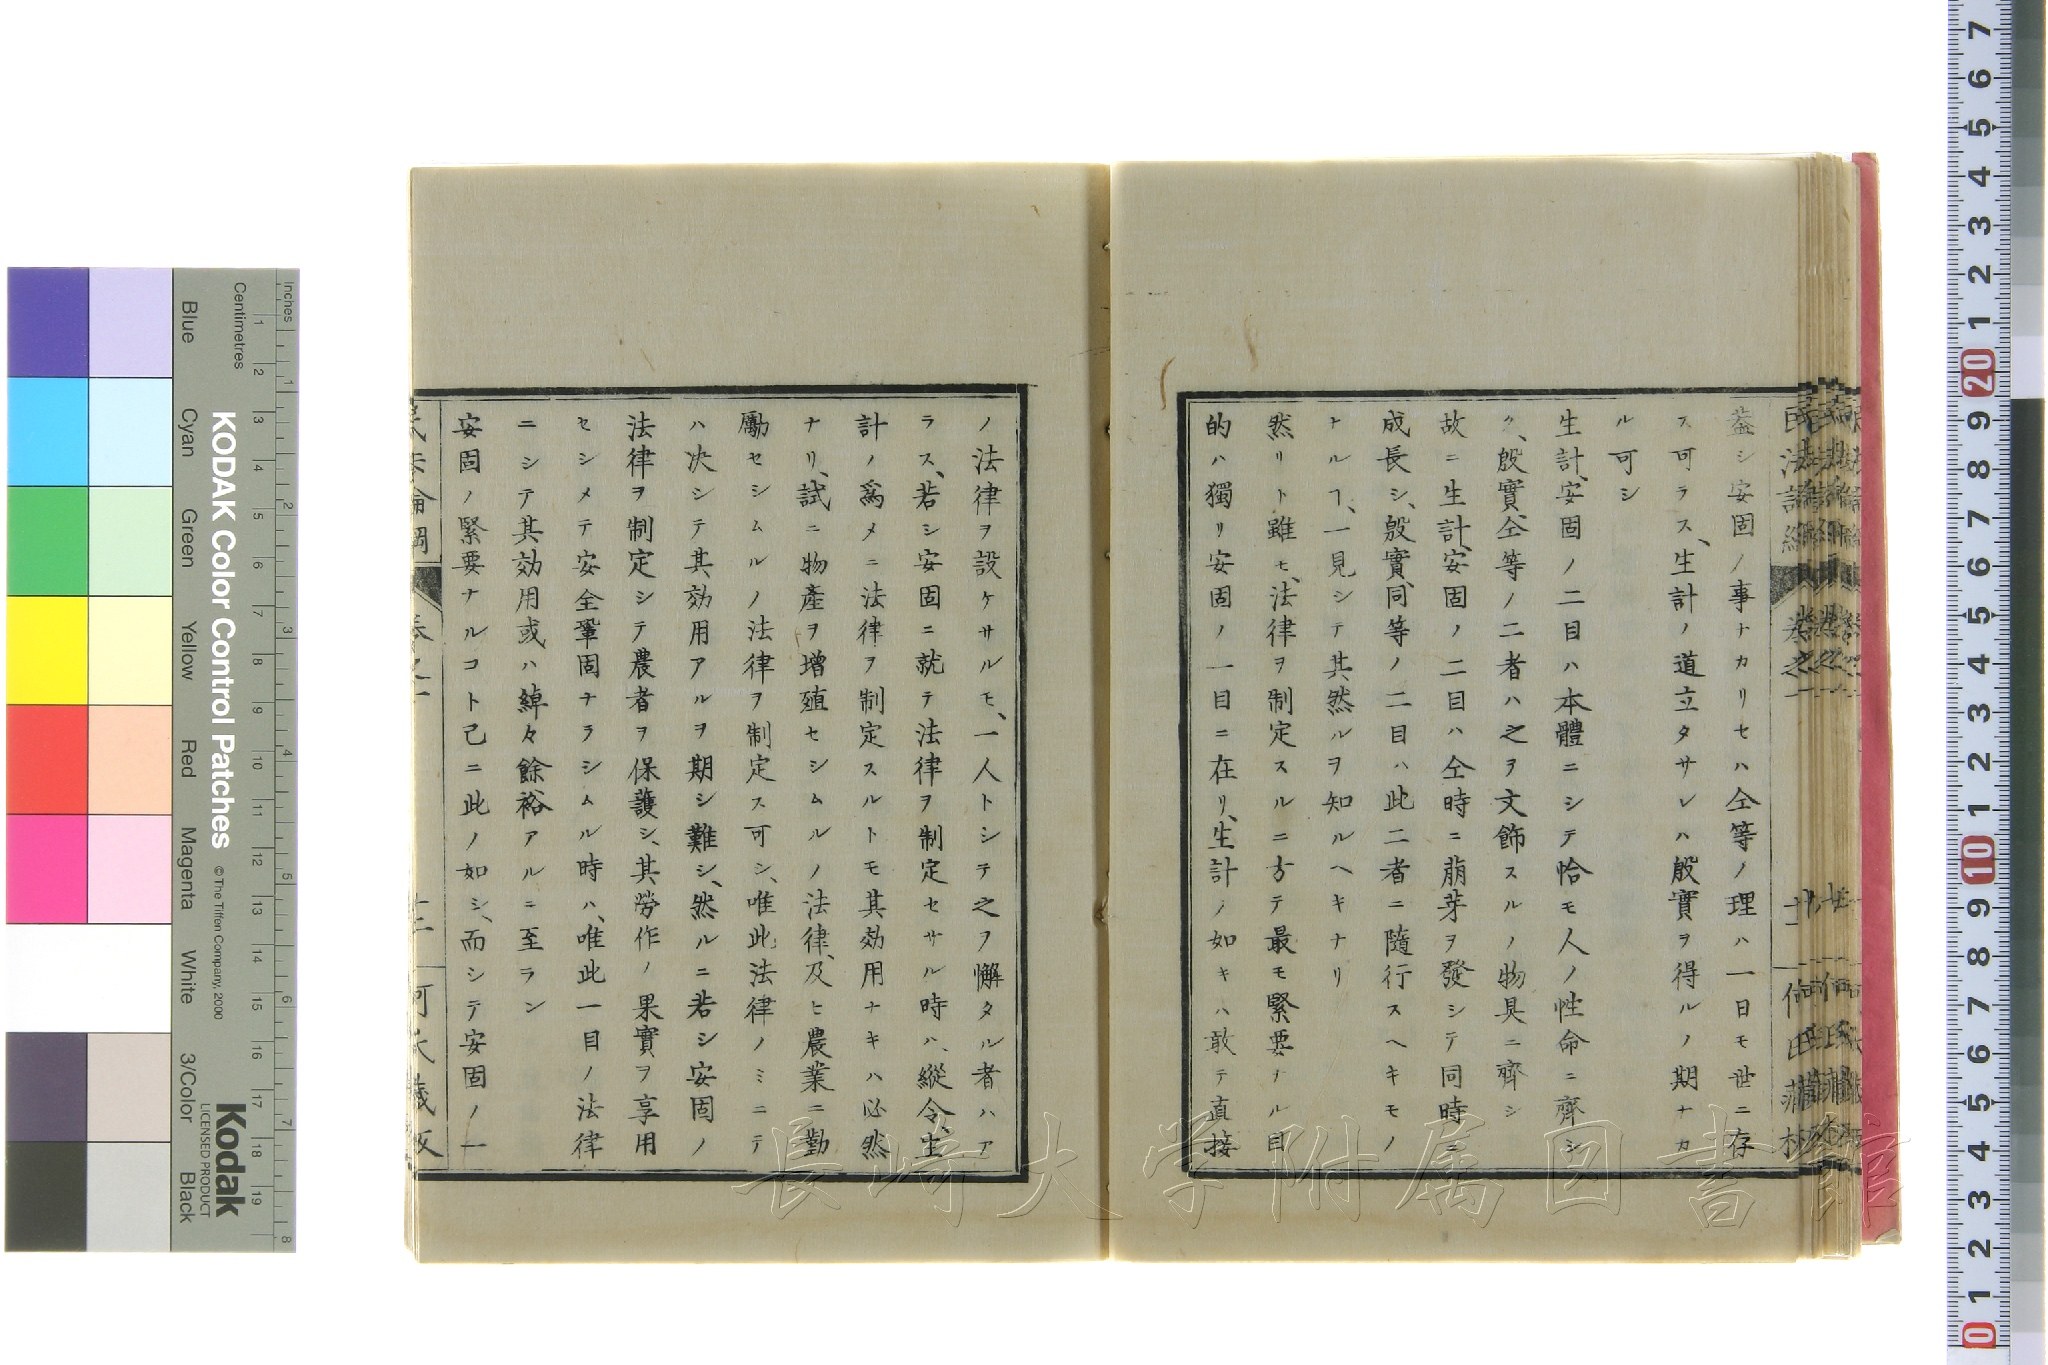 蓋シ安固ノ事ナカリセハ仝等ノ理ハ一日モ世ニ存
ス可ラス、生計ノ道立タサレハ殷實ヲ得ルノ期ナカ
ル可シ
生計、安固ノ二目ハ本體ニシテ恰モ人ノ性命ニ齊シ
ク、殷實、仝等ノ二者ハ之ヲ文飾スルノ物具ニ齊シ
故ニ生計、安固ノ二目ハ仝時ニ萠芽ヲ發シテ同時ニ
成長シ、殷實、同等ノ二目ハ此二者ニ隨行スヘキモノ
ナルヿ、一見シテ其然ルヲ知ルヘキナリ
然リト雖モ、法律ヲ制定スルニ方テ最モ緊要ナル目
的ハ獨リ安固ノ一目ニ在リ、生計ノ如キハ敢テ直接
ノ法律ヲ設ケサルモ、一人トシテ之ヲ懈タル者ハア
ラス、若シ安固ニ就テ法律ヲ制定セサル時ハ、縱令、生
計ノ爲メニ法律ヲ制定スルトモ其効用ナキハ必然
ナリ、試ニ物產ヲ增殖セシムルノ法律、及ヒ農業ニ勤
勵セシムルノ法律ヲ制定ス可シ、唯此法律ノミニテ
ハ决シテ其効用アルヲ期シ難シ、然ルニ若シ安固ノ
法律ヲ制定シテ農者ヲ保護シ、其勞作ノ果實ヲ享用
セシメテ安全鞏固ナラシムル時ハ、唯此一目ノ法律
ニシテ其効用或ハ綽々餘裕アルニ至ラン
安固ノ緊要ナルコト已ニ此ノ如シ、而シテ安固ノ一
長崎大学附属図書館
KODAK Color Control Patches
© The Tiffen Company, 2000
Kodak
LICENSED PRODUCT
Inches
Centimetres
Blue
Cyan
Green
Yellow
Red
Magenta
White
3/Color
Black
1 2 3 4 5 6 7 8 9 10 11 12 13 14 15 16 17 18 19
1 2 3 4 5 6 7 8
7 6 5 4 3 2 1 20 9 8 7 6 5 4 3 2 1 10 9 8 7 6 5 4 3 2 1 0